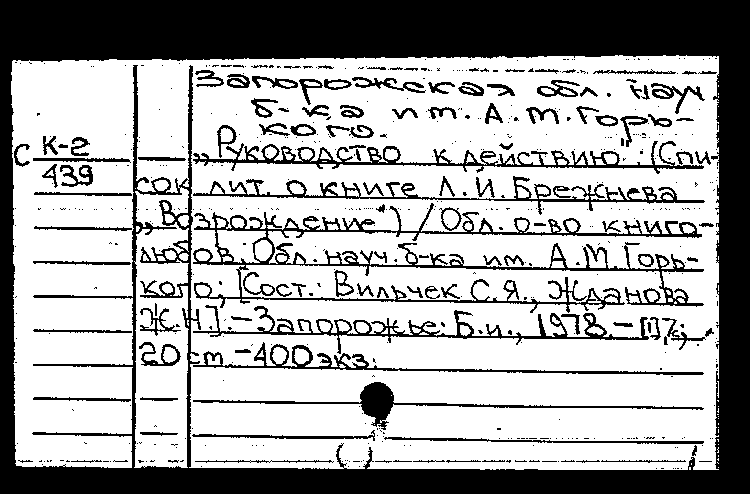 Запорожская обл. науч.
б-ка им. А.М.Горь-
кого.
С К-2
439
„Руководство к действию": (Спи-
сок лит. о книге Л.И.Брежнева
„Возрождение") / Обл. о-во книго-
любов; Обл. науч. б-ка им. А.М.Горь-
кого; [Сост.: Вильчек С.Я., Жданова
Ж.Н.]. - Запорожье: Б.и., 1978. - [1]7с;
20 см. - 400 экз.